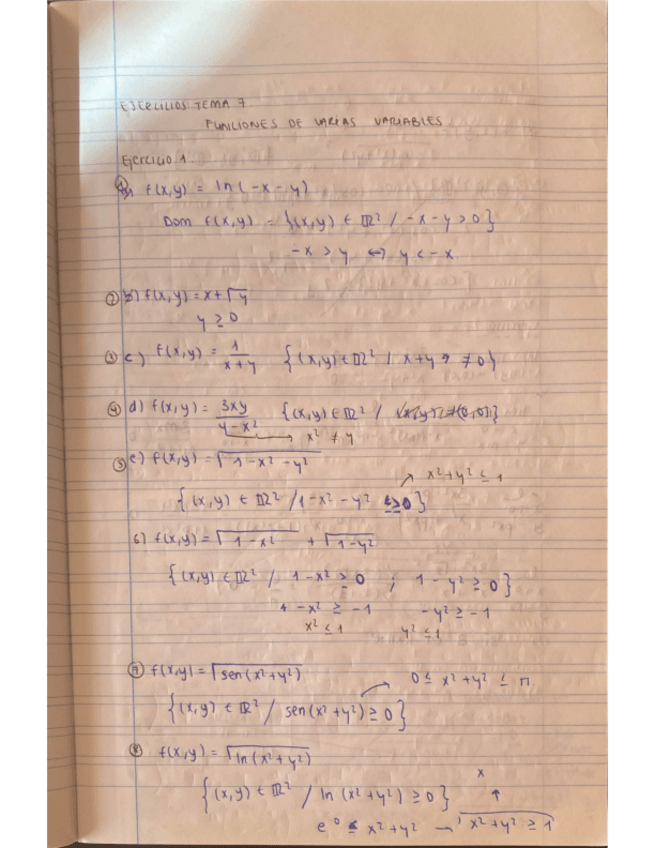 EJERCICIOS TEMA 7
FUNCIONES DE VARIAS VARIABLES
Ejercicio 1
f(x,y) = ln(-x-y)
Dom f(x,y) = {(x,y) ∈ ℝ² / -x-y>0}
-x > y ⟺ y < -x
② b) f(x,y) = x+√y
y ≥ 0
③ c) f(x,y) = 1/(x+y) {(x,y) ∈ ℝ² / x+y ≠ 0}
④ d) f(x,y) = 3xy/(y-x²) {(x,y) ∈ ℝ² /
→ x² ≠ y
⑤ e) f(x,y) = √(1-x²-y²)
↗ x²+y² ≤ 1
{(x,y) ∈ ℝ² / 1-x²-y² ≥0}
6) f(x,y) = √(1-x²) + √(1-y²)
{(x,y) ∈ ℝ² / 1-x² ≥ 0 ; 1-y² ≥ 0}
-x² ≥ -1 -y² ≥ -1
x² ≤ 1 y² ≤ 1
⑦ f(x,y) = √(sen(x²+y²)) 0 ≤ x²+y² ≤ π
{(x,y) ∈ ℝ² / sen(x²+y²) ≥ 0}
⑧ f(x,y) = √(ln(x²+y²))
x
{(x,y) ∈ ℝ² / ln(x²+y²) ≥ 0} ↑
e⁰ ≤ x²+y² → x²+y² ≥ 1